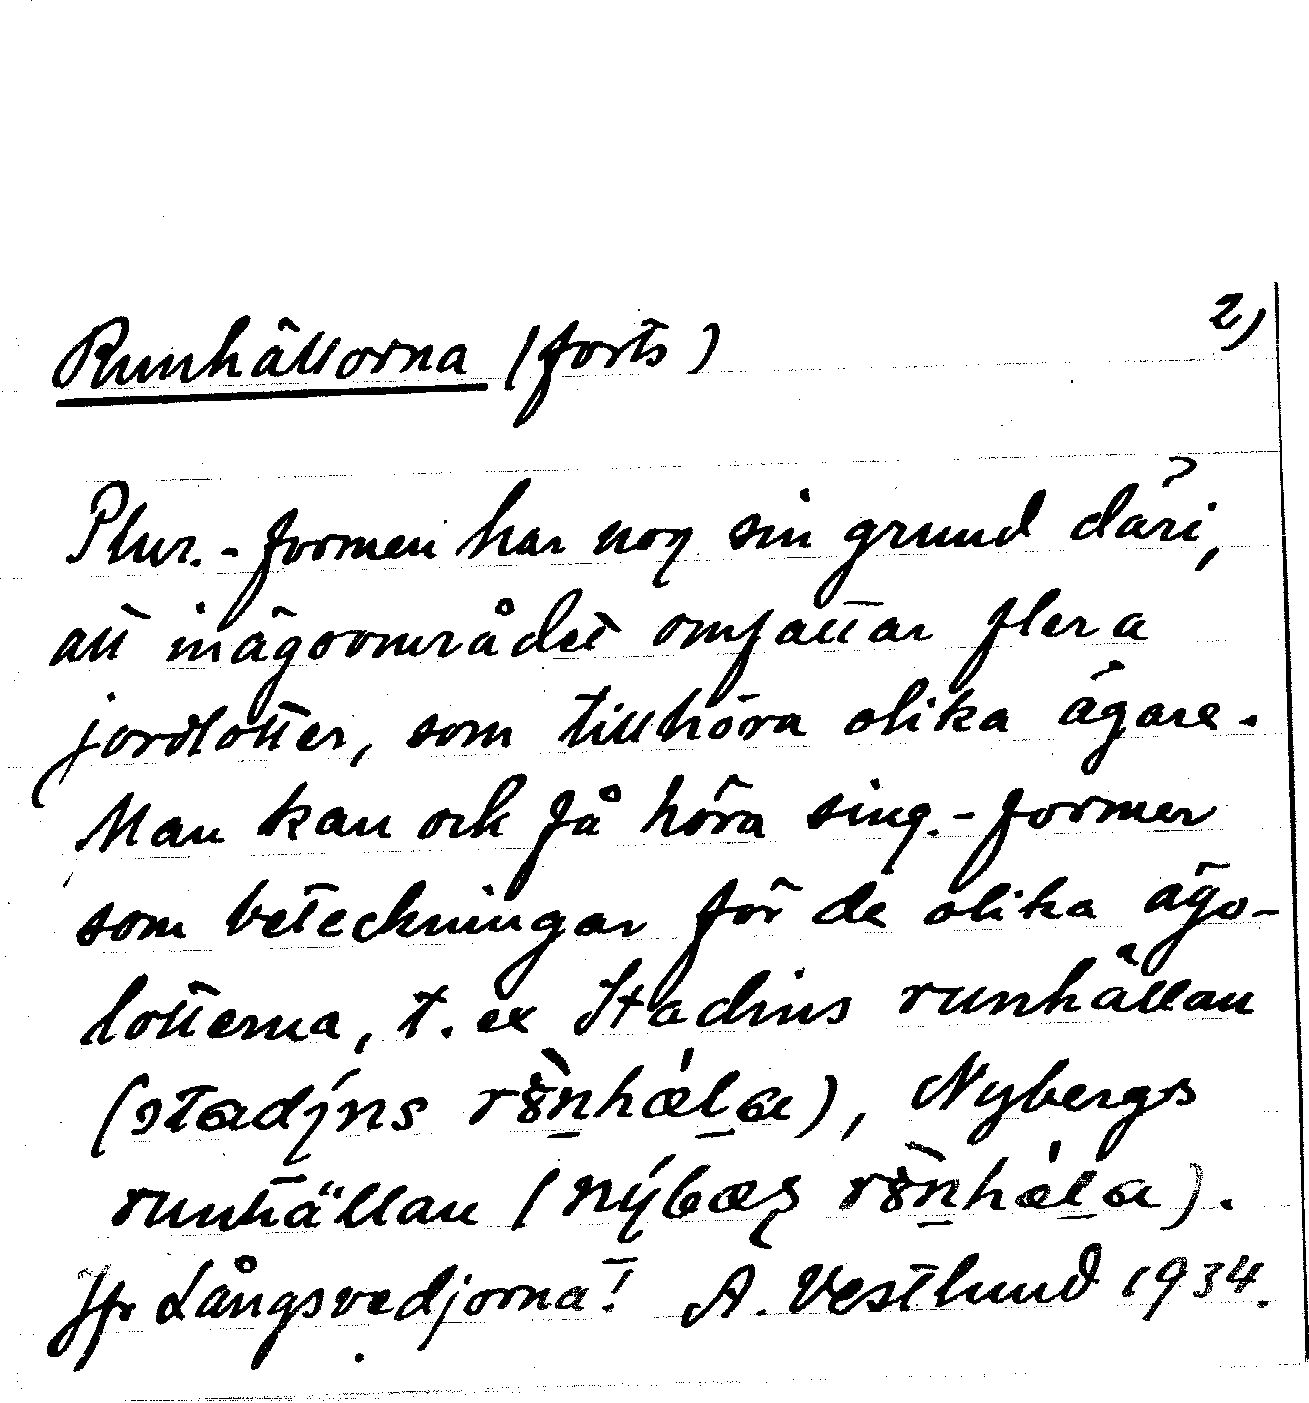 Runhällorna (forts) 2)
Plur.-formen har nog sin grund däri,
att inägoområdet omfattar flera
jordlotter, som tillhöra olika ägare.
Man kan ock få höra sing.-former
som beteckningar för de olika ägo-
lotterna, t. ex Stadins runhällan
(stadins), Nybergs
runhällan ().
Jfr Långsvedjorna! A. Vestlund 1934.